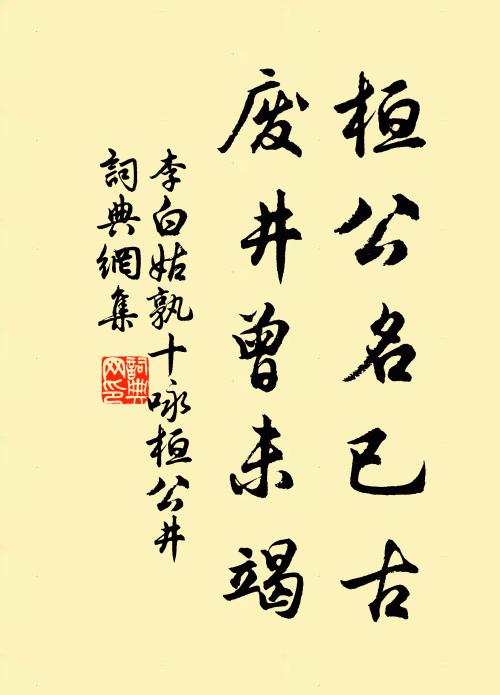 桓公名已古
废井曾未竭
李白姑孰十咏桓公井
詞典網集
詞典网印